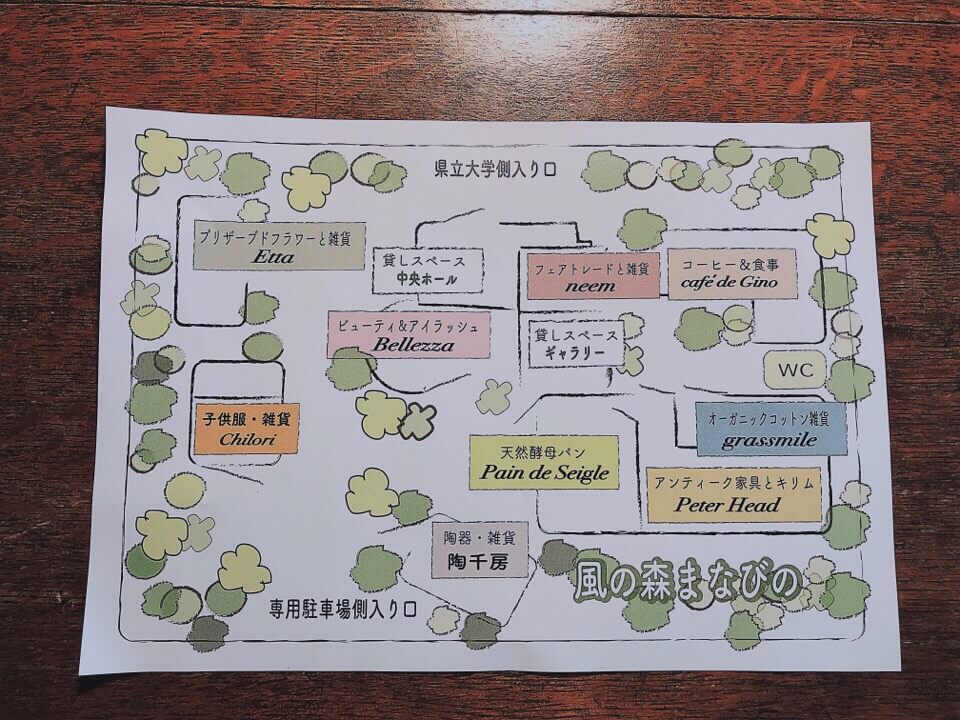 県立大学側入り口
プリザーブドフラワーと雑貨
Etta
貸しスペース
中央ホール
フェアトレードと雑貨
neem
コーヒー＆食事
café de Gino
ビューティ&アイラッシュ
Bellezza
貸しスペース
ギャラリー
WC
子供服・雑貨
Chilori
オーガニックコットン雑貨
grassmile
天然酵母パン
Pain de Seigle
アンティーク家具とキリム
Peter Head
陶器・雑貨
陶千房
風の森まなびの
専用駐車場側入り口